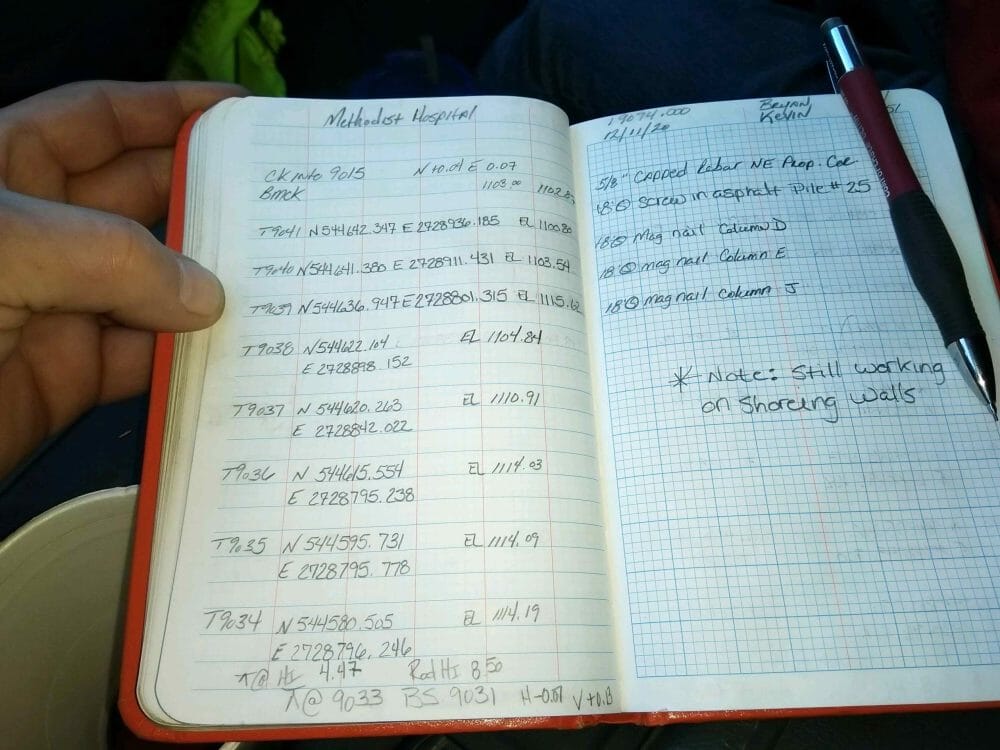 Methodist Hospital
CK into 9015 N+0.01 E 0.07
BMCK 1103.00
T9041 N544642.347 E2728936.185 EL 1100.80
T9040 N544641.380 E2728911.431 EL 1103.54
T9039 N544636.947 E2728801.315 EL 1115.62
T9038 N544622.104 EL 1104.84
E 2728898.152
T9037 N 544620.263 EL 1110.91
E 2728842.022
T9036 N 544615.554 EL 1114.03
E 2728795.238
T9035 N 544595.731 EL 1114.09
E 2728795.778
T9034 N 544580.505 EL 1114.19
E 2728796.246
⊼@ HI 4.47 Rod HI 8.50
⊼@ 9033 BS 9031 H-0.01
19074.000 BRYAN,
12/11/20 KEVIN 51
5/8" Capped Rebar NE Prop. Cor
Screw in asphalt Pile # 25
Mag nail Column D
mag nail Column E
mag nail Column J
* Note: Still working
on Shoreing Walls